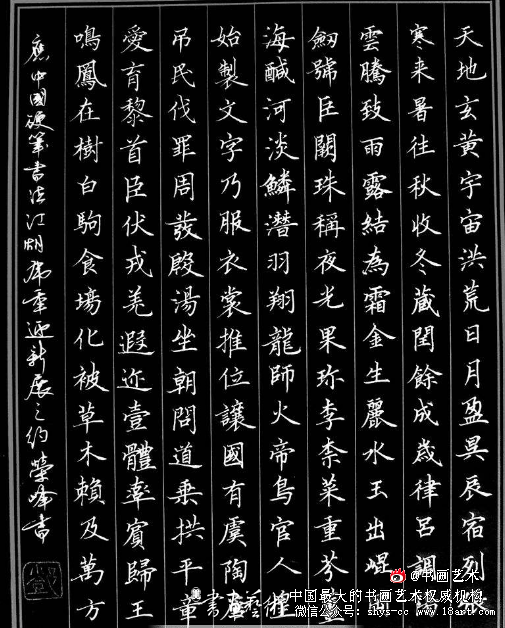 天地玄黃宇宙洪荒日月盈昃辰宿列張
寒来暑往秋收冬蔵閏餘成歲律呂調陽
雲騰致雨露結為霜金生麗水玉出崐岡
劒號巨闕珠稱夜光果珍李柰菜重芥薑
海醎河淡鱗潛羽翔龍師火帝鳥官人皇
始製文字乃服衣裳推位讓國有虞陶唐
吊民伐罪周發殷湯坐朝問道垂拱平章
愛育黎首臣伏戎羌遐迩壹體率賓歸王
鳴鳳在樹白駒食場化被草木賴及萬方
應中國硬筆書法江湖虎年迎新展之約 榮峰書
@书画艺术
中国最大的书画艺术权威机构
微信公众号:shys-cc www.18art.com